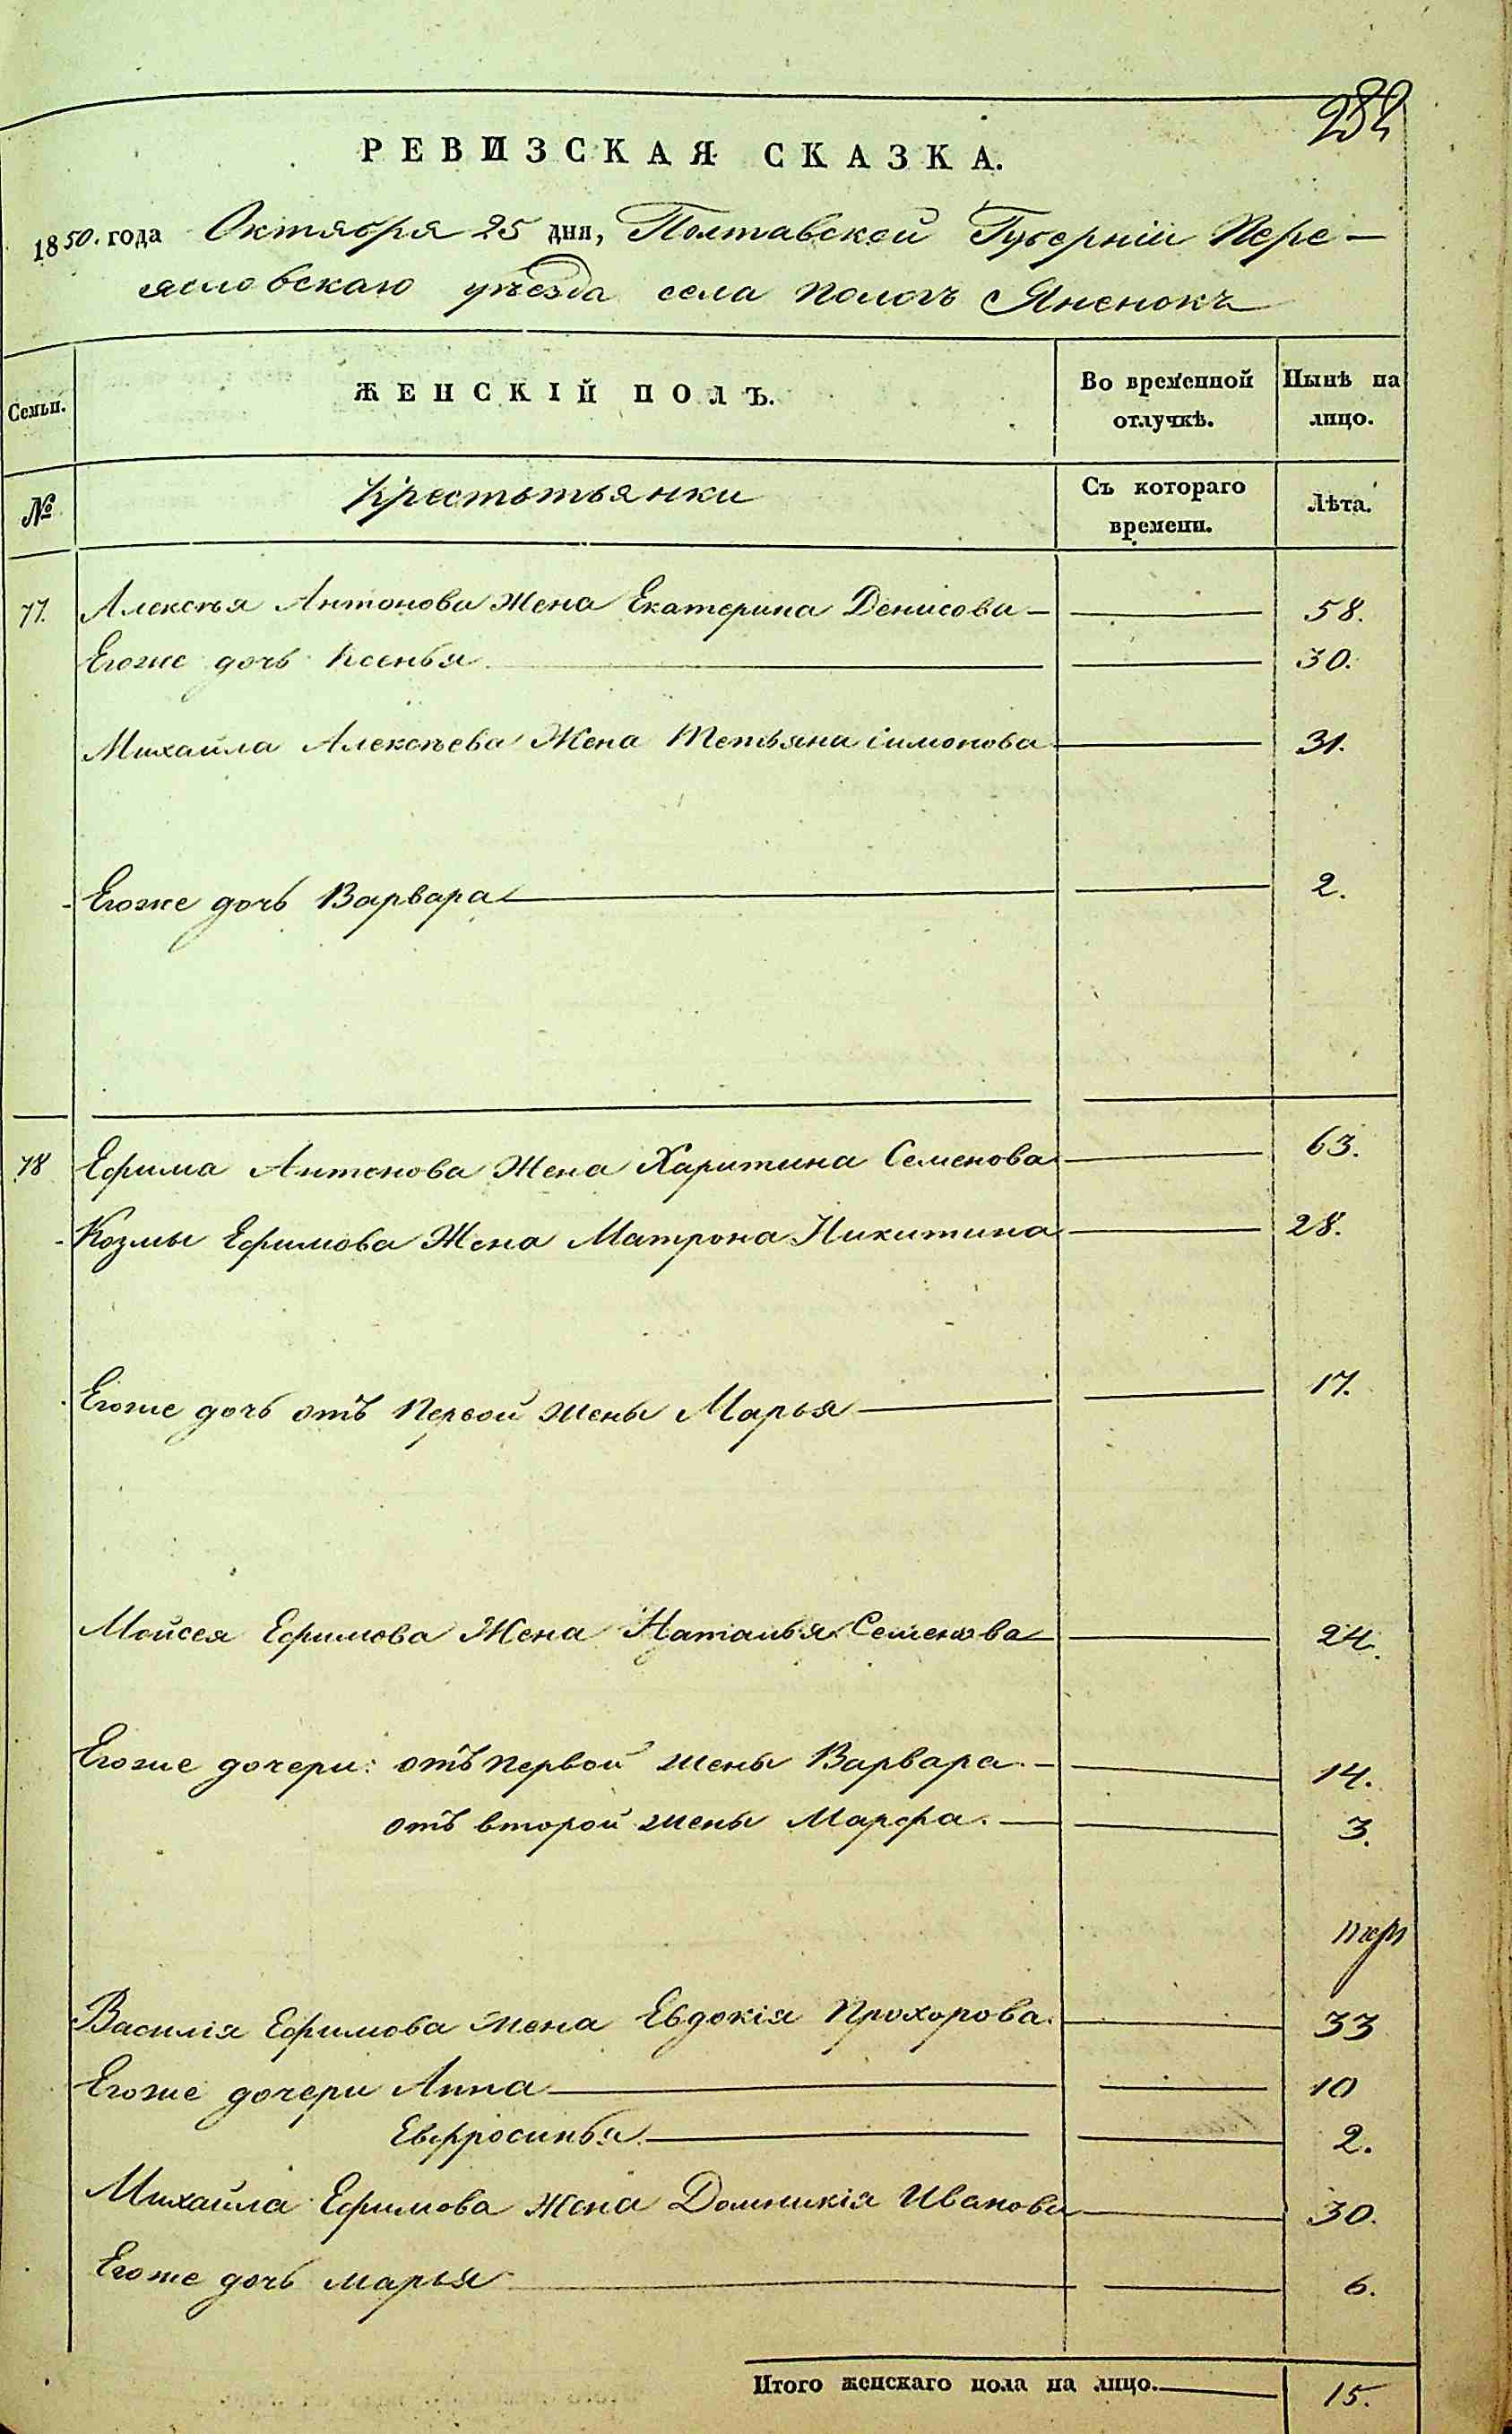 282
РЕВИЗСКАЯ СКАЗКА.
1850. года Октября 25 дня, Полтавской Губерніи Пере-
ясловскаго уѣезда села Пологъ Яненокъ
Семьи. ЖЕНСКІЙ ПОЛЪ. Во временной отлучкѣ. Нынѣ на лицо.
№ Крестьтьянки Съ котораго времени. Лѣта.
77. Алексѣя Антонова Жена Екатерина Денисова 58.
Егоже дочь Ксенья 30.
Михайла Алексѣева Жена Тетьяна Симонова 31.
Егоже дочь Варвара 2.
78 Ефима Антонова Жена Харитина Семенова 63.
Козмы Ефимова Жена Матрона Никитина 28.
Егоже дочь отъ Первой жены Марья 17.
Мойсея Ефимова Жена Наталья Семенова 24.
Егоже дочери: отъ первой жены Варвара. 14.
отъ второй жены Марфа. 3.
Василія Ефимова жена Евдокія Прохорова. 33
Егоже дочери Анна 10
Евфросинья 2.
Михайла Ефимова Жена Домникія Иванова 30.
Егоже дочь Марья 6.
Итого женскаго пола на лицо. 15.